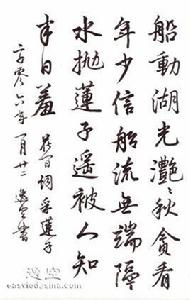 船動湖光灩〻秋貪看
年少信船流無端隔
水拋蓮子遙被人知
半日羞 詞采蓮子
零六年一月廿二